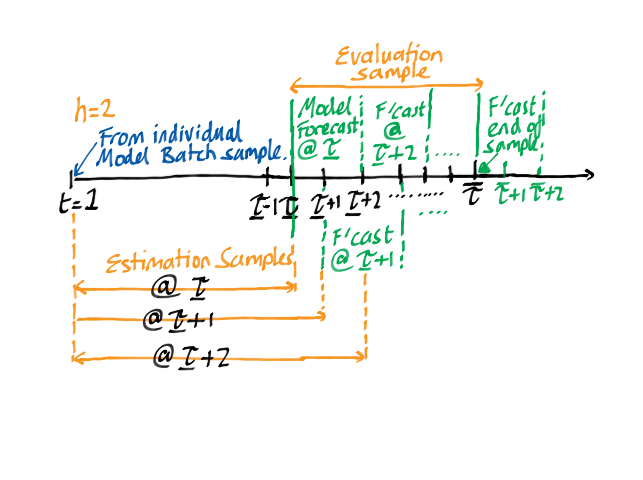 Evaluation
sample
h=2
From individual
Model Batch sample.
Model
Forecast
@ τ̲
F'cast
@
τ̲+2
....
F'cast
end of
sample
t=1
τ̲-1
τ̲
τ̲+1
τ̲+2
.........
....
τ̄
τ̄+1
τ̄+2
F'cast
@ τ̲+1
Estimation Samples
@ τ̲
@ τ̲+1
@ τ̲+2